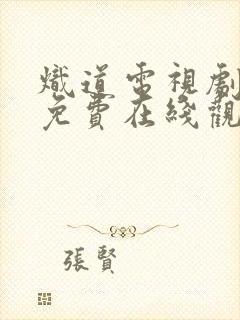 熾道電視劇
免費在綫觀
張賢